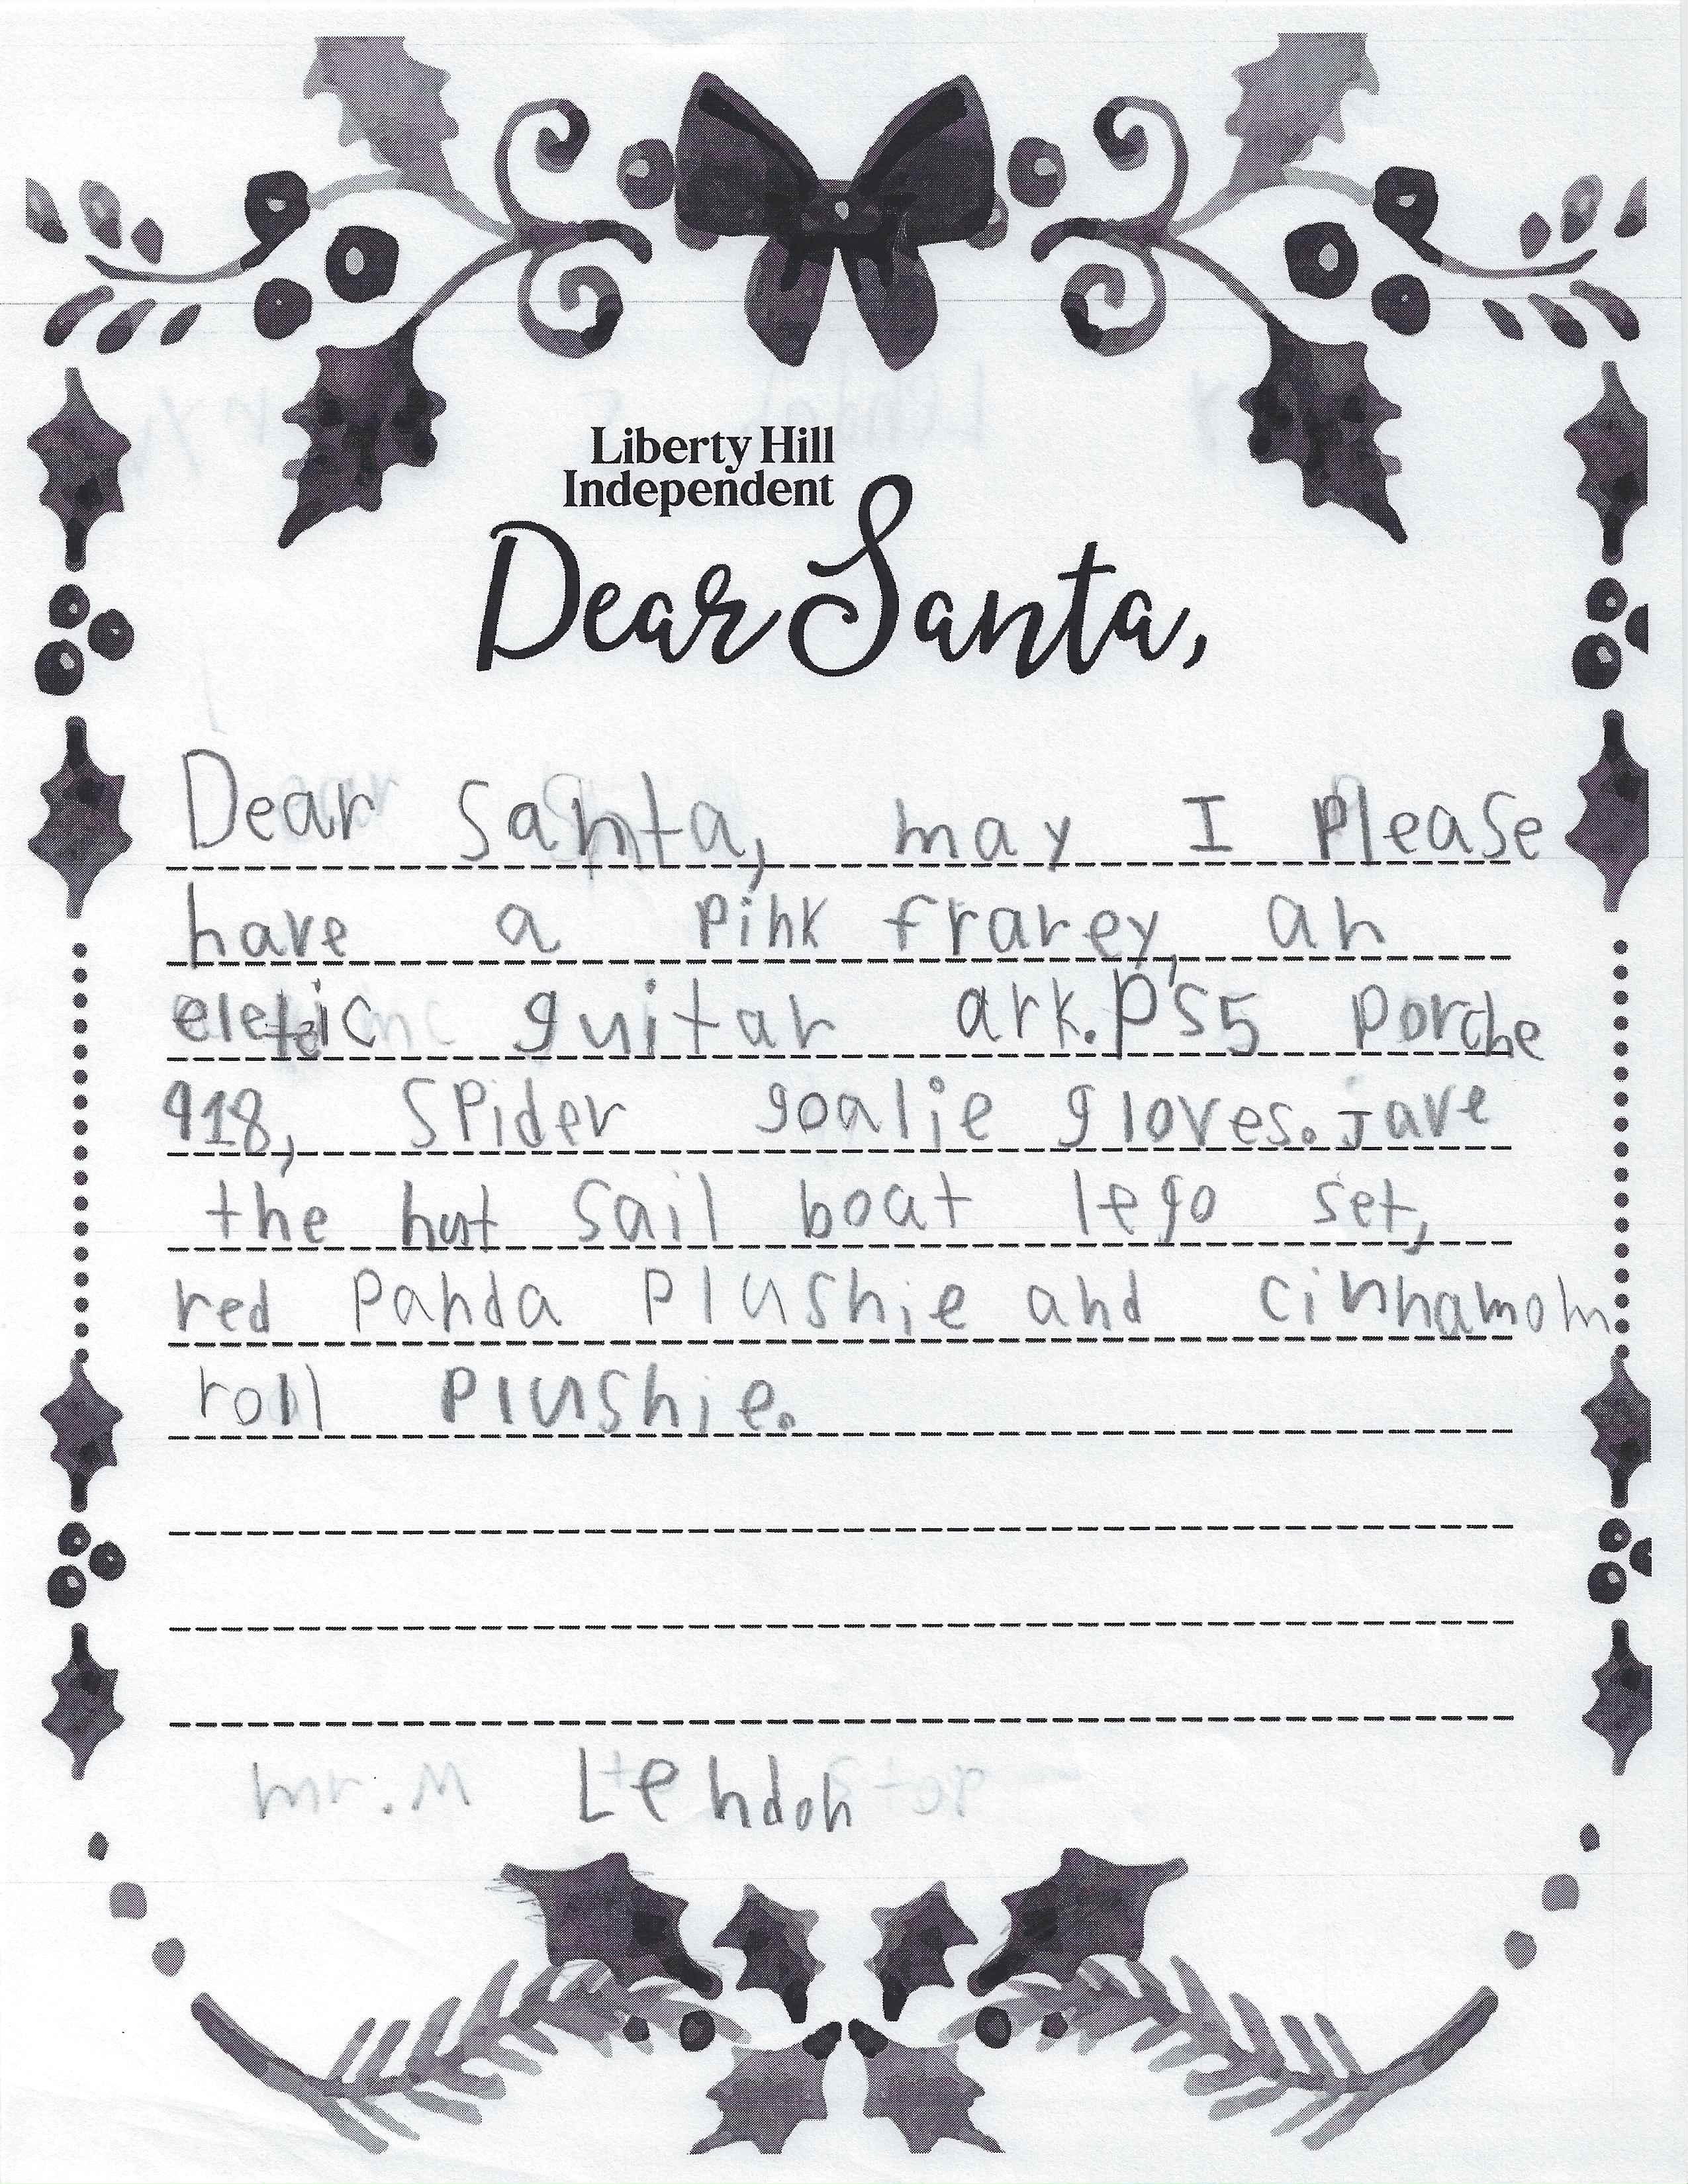 Liberty Hill
Independent
Dear Santa,
Dear Santa, may I Please
have a Pink frarey, an
eletric guitar ark. PS5 Porche
918, SPider goalie gloves. jave
the hut Sail boat lego set,
red Panda Plushie and cinnamon
roll Plushie.
mr. M Lendon